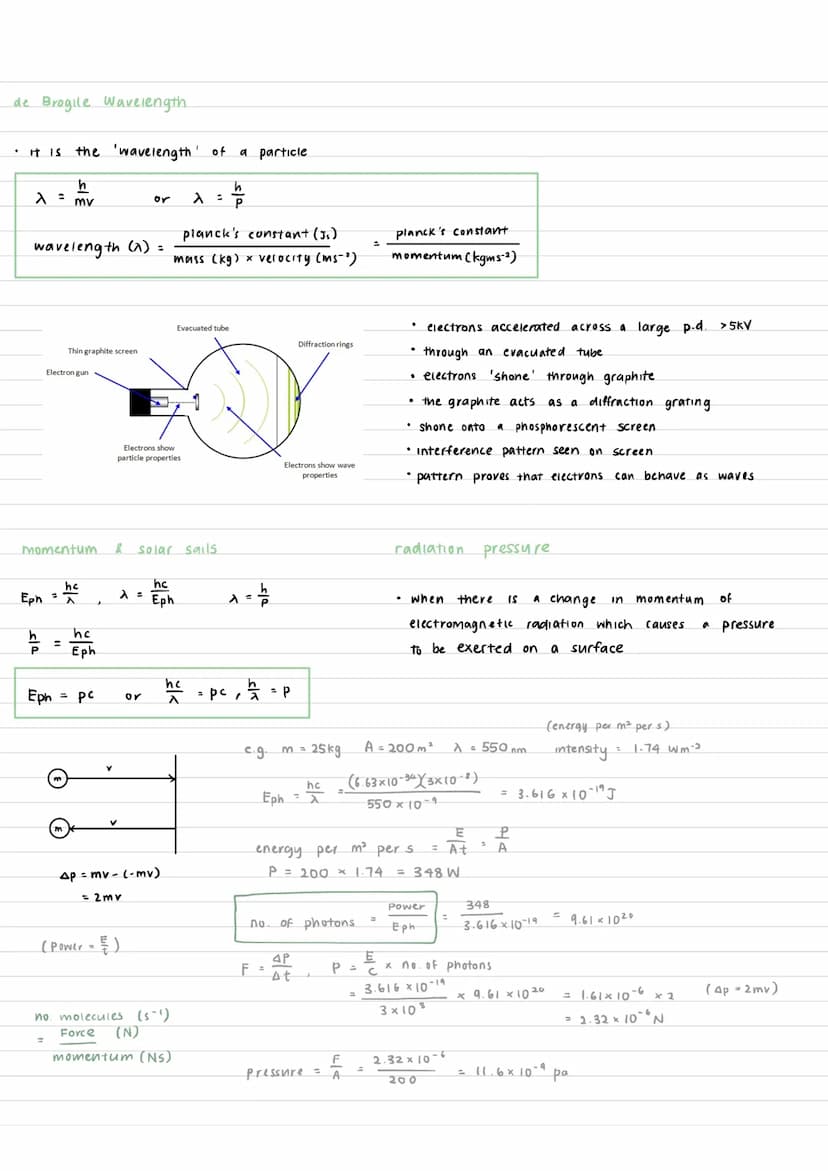 de Brogile Wavelength
• It is the 'wavelength' of a particle
λ = h/mv or λ = h/p
wavelength (λ) = planck's constant (Js) / mass (kg) × velocity (ms⁻¹) = planck's constant / momentum (kgms⁻¹)
Evacuated tube
Thin graphite screen
Diffraction rings
Electron gun
Electrons show
particle properties
Electrons show wave
properties
• electrons accelerated across a large p.d. >5kV
• through an evacuated tube
• electrons 'shone' through graphite
• the graphite acts as a diffraction grating
• shone onto a phosphorescent screen
• interference pattern seen on screen
• pattern proves that electrons can behave as waves
momentum & solar sails
Eph = hc/λ , λ = hc/Eph λ = h/p
h/p = hc/Eph
Eph = pc or hc/λ = pc, h/λ = p
radiation pressure
• when there is a change in momentum of
electromagnetic radiation which causes a pressure
to be exerted on a surface
m v
m v
Δp = mv - (-mv)
= 2mv
(Power = E/t)
no. molecules (s⁻¹)
= Force (N) / momentum (Ns)
(energy per m² per s)
e.g. m = 25kg A = 200m² λ = 550nm intensity = 1.74 Wm⁻²
Eph = hc/λ = (6.63×10⁻³⁴)(3×10⁻⁸) / 550×10⁻⁹ = 3.616 × 10⁻¹⁹J
energy per m² per s = E/At = P/A
P = 200 × 1.74 = 348W
no. of photons = Power/Eph = 348 / 3.616×10⁻¹⁹ = 9.61 × 10²⁰
F = ΔP/Δt , P = E/c × no. of photons
= 3.616 ×10⁻¹⁹ / 3×10⁸ × 9.61 ×10²⁰ = 1.61×10⁻⁶ × 2 (Δp = 2mv)
= 2.32 × 10⁻⁶N
Pressure = F/A = 2.32×10⁻⁶ / 200 = 11.6×10⁻⁹ pa